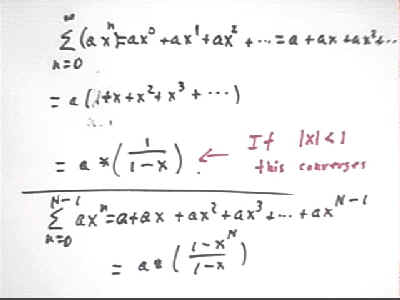 ∞
∑ (ax^n) = ax^0 + ax^1 + ax^2 + ··· = a + ax + ax^2 + ···
n=0
= a (1 + x + x^2 + x^3 + ···)
= a * (1/(1-x)) ← If |x| < 1
this converges
N-1
∑ ax^n = a + ax + ax^2 + ax^3 + ··· + ax^(N-1)
n=0
= a * ((1-x^N)/(1-x))